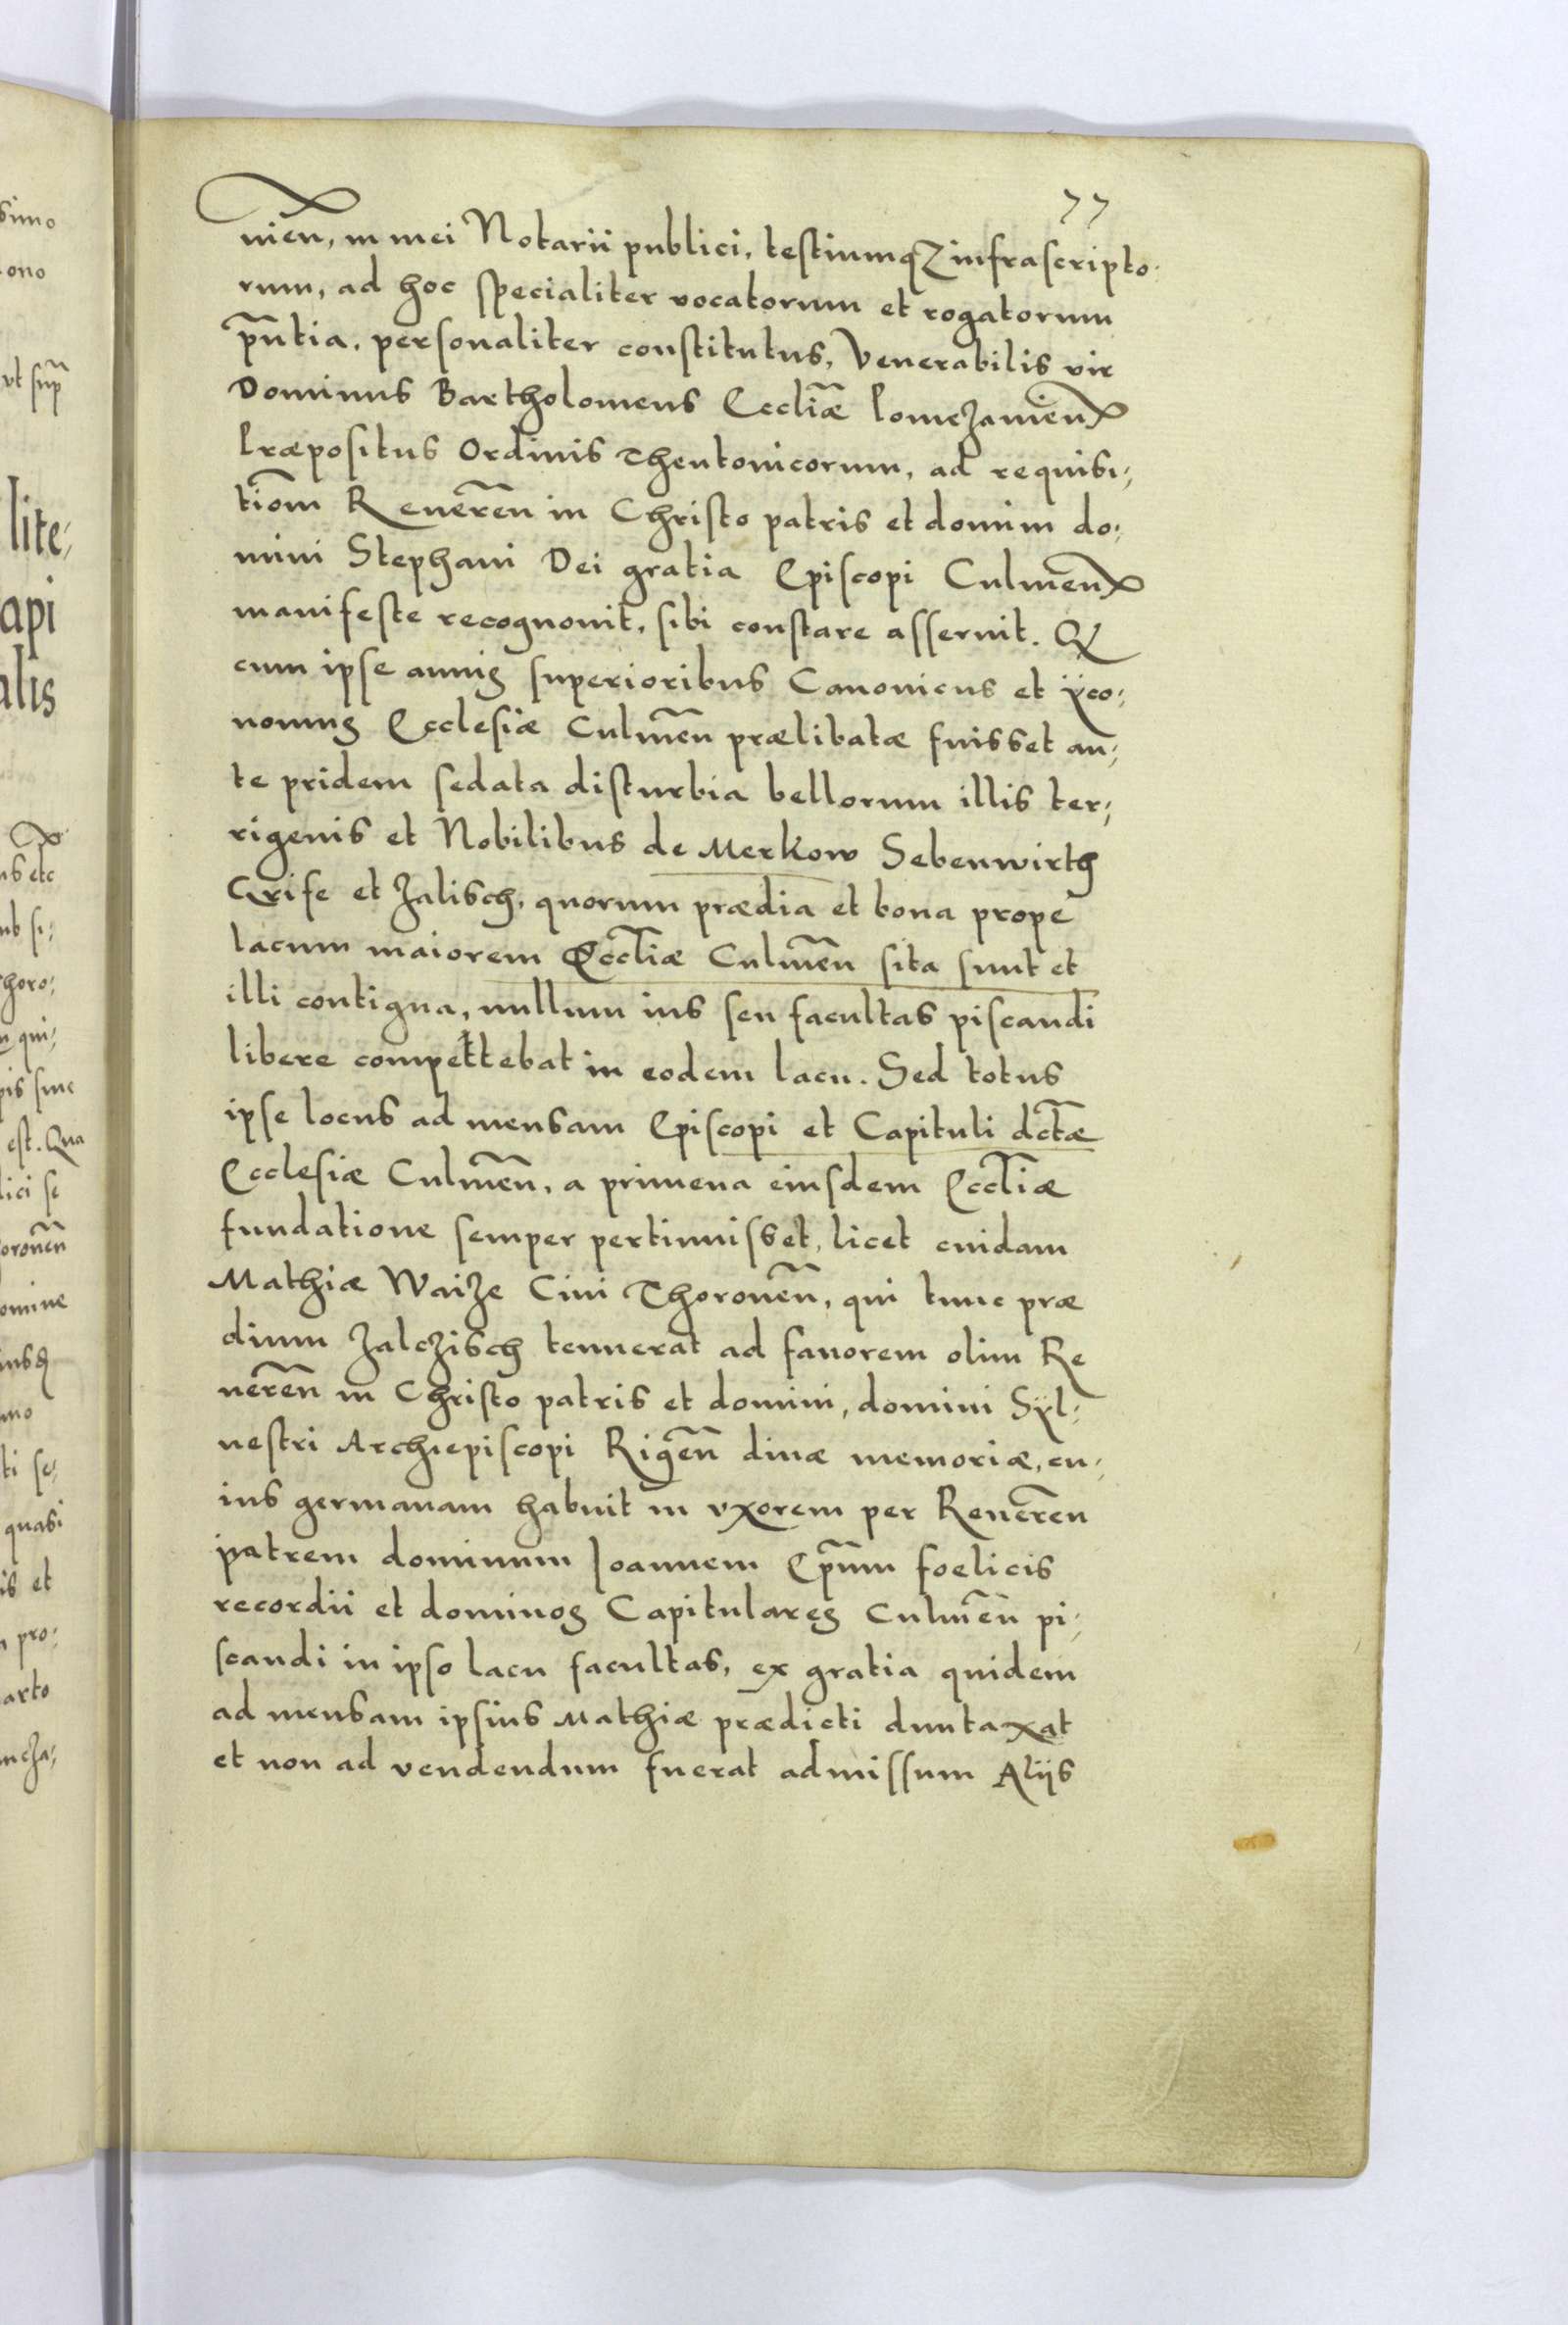 77
nieñ, in mei Notarii publici, testiumqз infrascripto-
rum, ad hoc specialiter vocatorum et rogatorum
pñtia, personaliter constitutus, Venerabilis vir
Dominus Bartholomeus Eccliæ Pomezanieñ
Præpositus Ordinis Theutonicorum, ad requisi-
tiom̃ Reuereñ in Christo patris et domini do-
mini Stephani Dei gratia Episcopi Culmeñ
manifeste recognouit, sibi constare asseruit. Q
cum ipse annis superioribus Canonicus et ÿco-
nomus Ecclesiæ Culmeñ prælibatæ fuisset an-
te pridem sedata disturbia bellorum illis ter-
rigenis et Nobilibus de Merkow Sebenwirth
Grife et Zalisch, quorum prædia et bona prope
lacum maiorem Eccliæ Culmeñ sita sunt et
illi contigua, nullum ius seu facultas piscandi
libere compettebat in eodem lacu. Sed totus
ipse locus ad mensam Episcopi et Capituli dctæ
Ecclesiæ Culmeñ, a primeua eiusdem Eccliæ
fundatione semper pertinuisset, licet cuidam
Mathiæ Waize Ciui Thoroneñ, qui tunc præ
dium Zalczisch tenuerat ad fauorem olim Re
uereñ in Christo patris et domini, domini Sÿl-
uestri Archiepiscopi Rigeñ diuæ memoriæ, cu-
ius germanam habuit in vxorem per Reuereñ
patrem dominum Ioannem Ep̃um foelicis
recordii et dominos Capitulares Culmeñ pi-
scandi in ipso lacu facultas, ex gratia quidem
ad mensam ipsius Mathiæ prædicti duntaxat
et non ad vendendum fuerat admissum Aliis